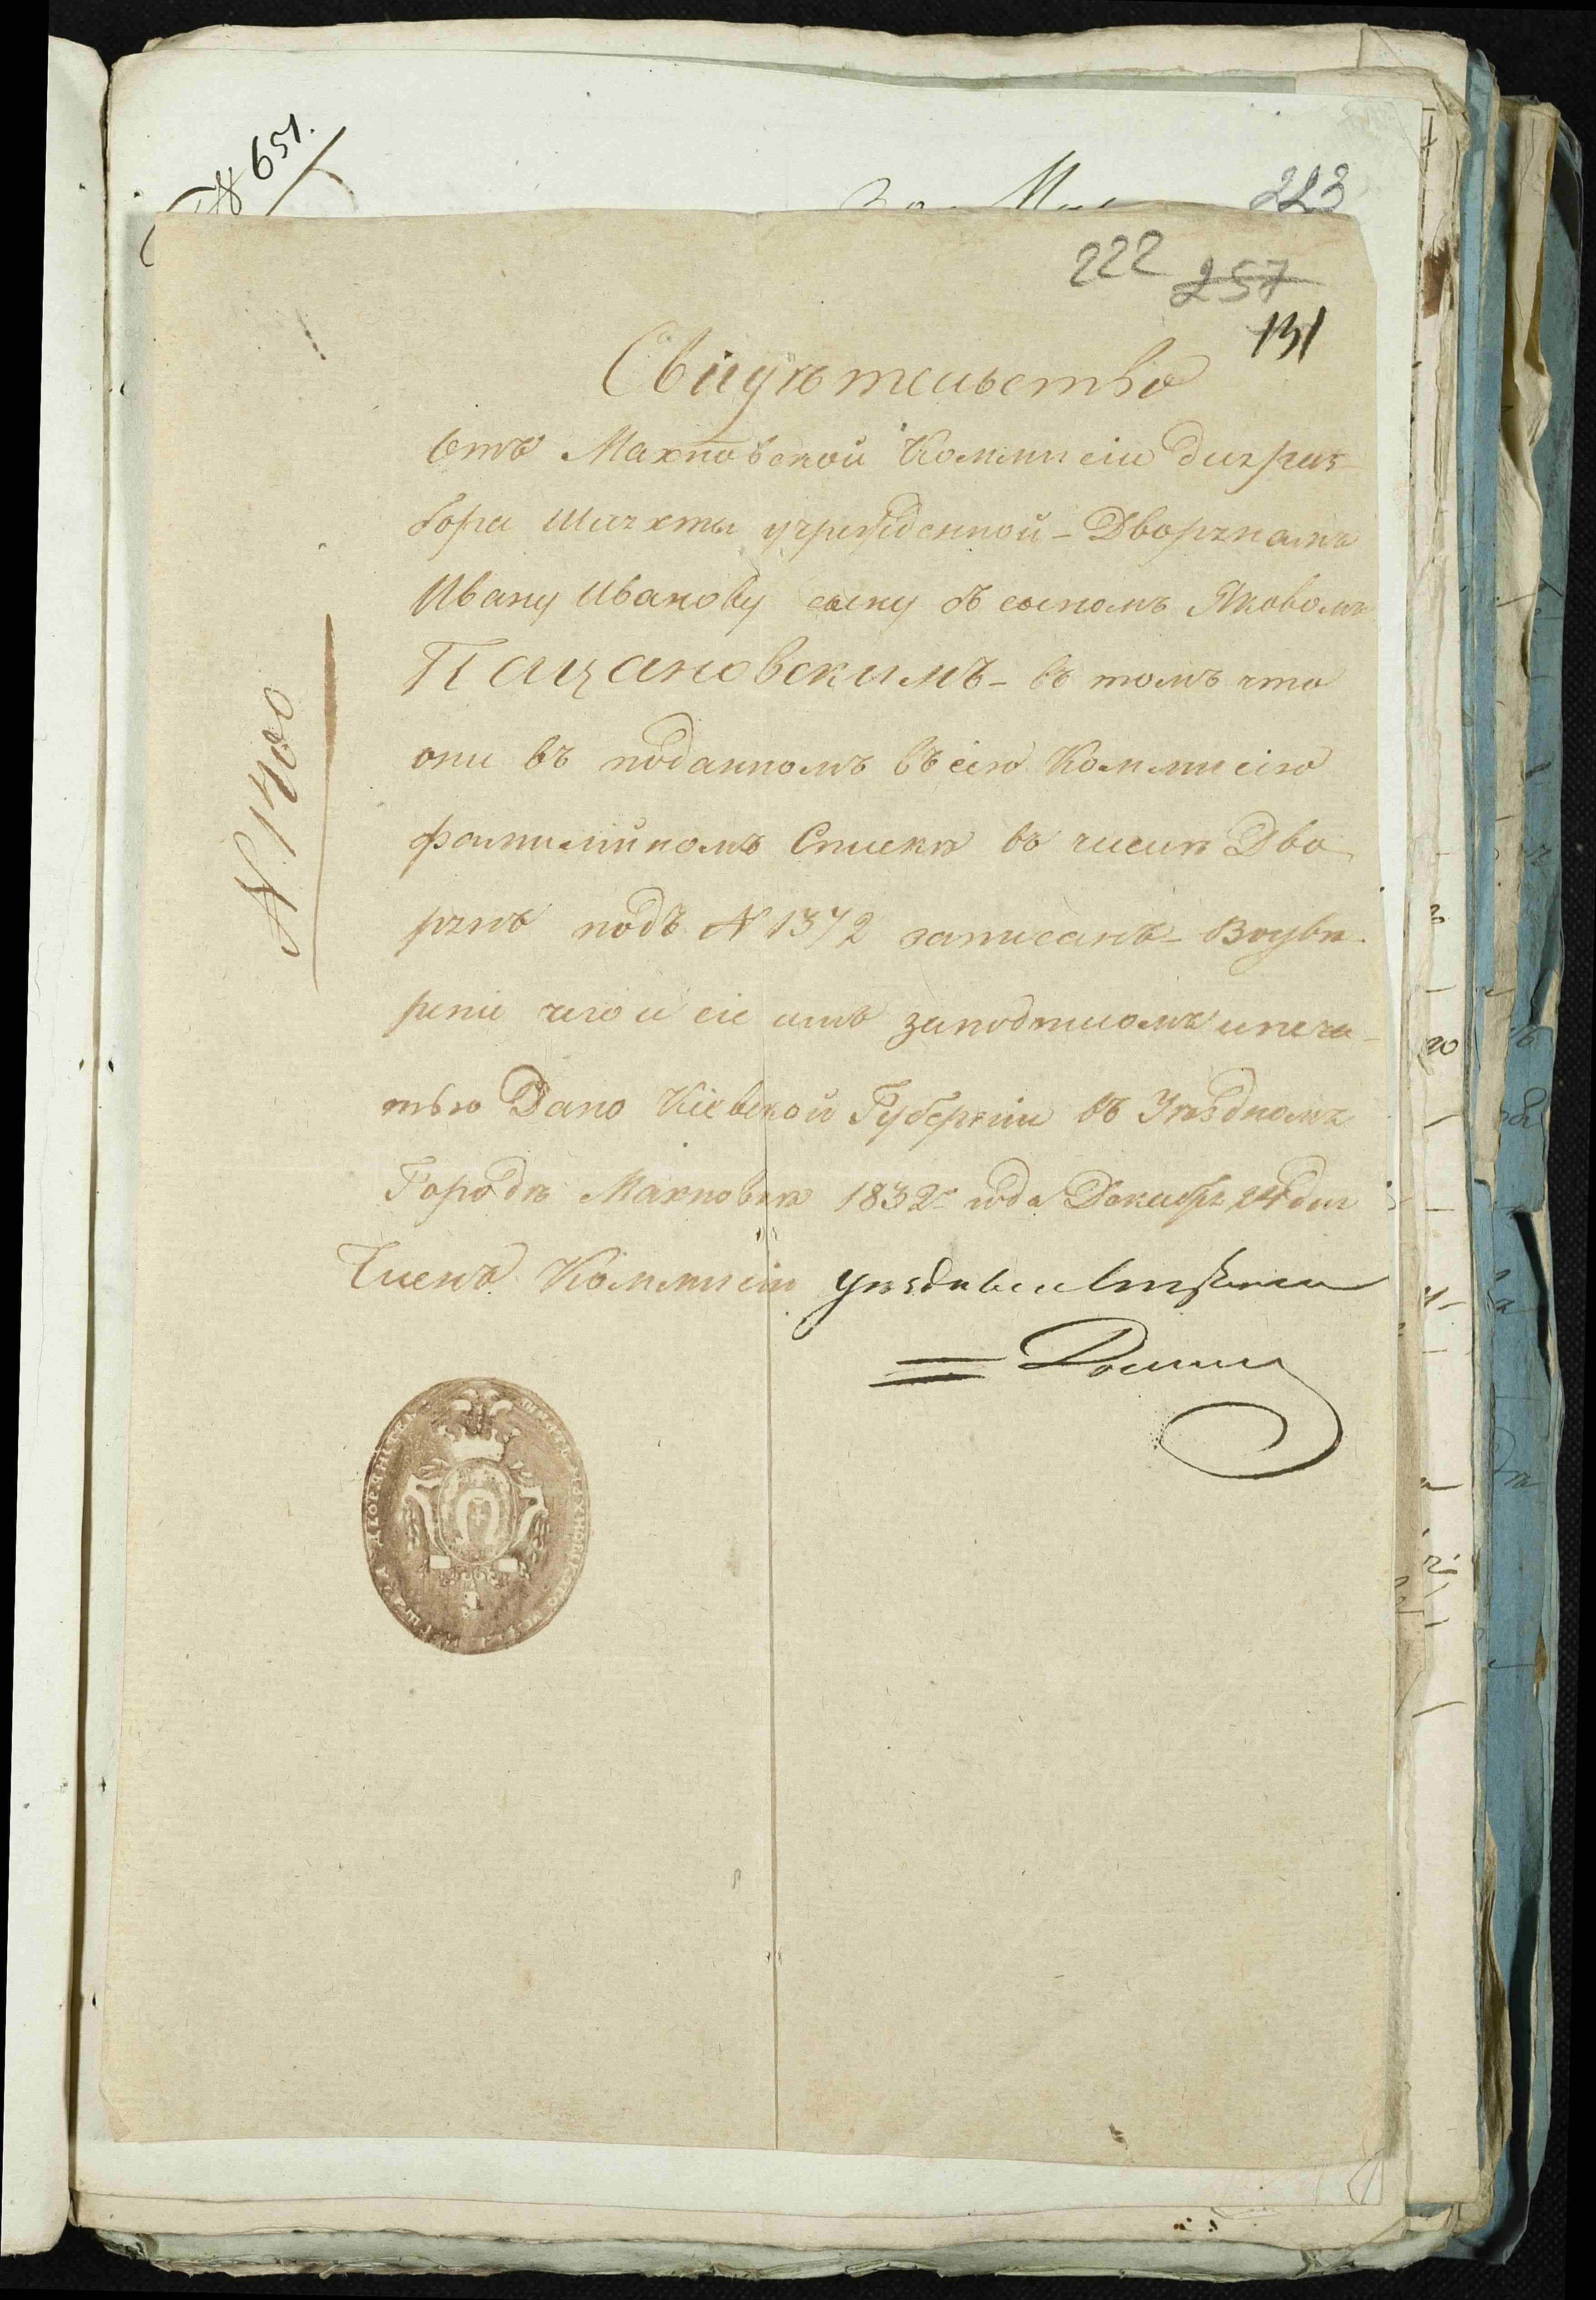 № 651.
223
222 257
131
Свидѣтельство
отъ Махновской Коммисіи для раз-
бора Шляхты учрежденной - Дворянамъ
Ивану Иванову сыну съ сыномъ Яковомъ
Пацановскимъ - въ томъ что
они въ поданномъ въ сію Коммисію
фамилійномъ Списке въ числѣ Дво
рянъ подъ № 1372 записанъ - Воувѣ-
реніе чего и сіе имъ заподписомъ ипеча-
тью Дано Кіевской Губерніи въ Уѣздномъ
Городѣ Махновкѣ 1832 года Декабря 24 дня
Членъ Коммисіи уѣздный
№ 1400